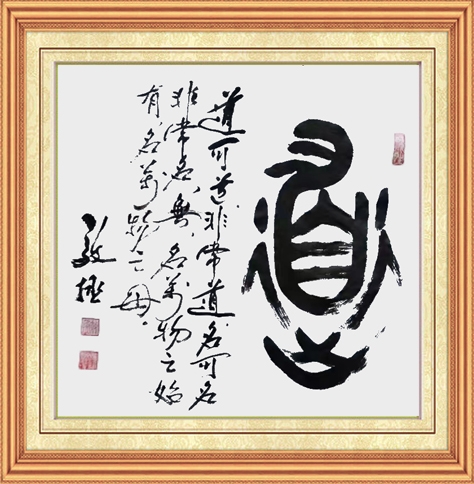 道
道可道非常道名可名
非常名無名萬物之始
有名萬物之母